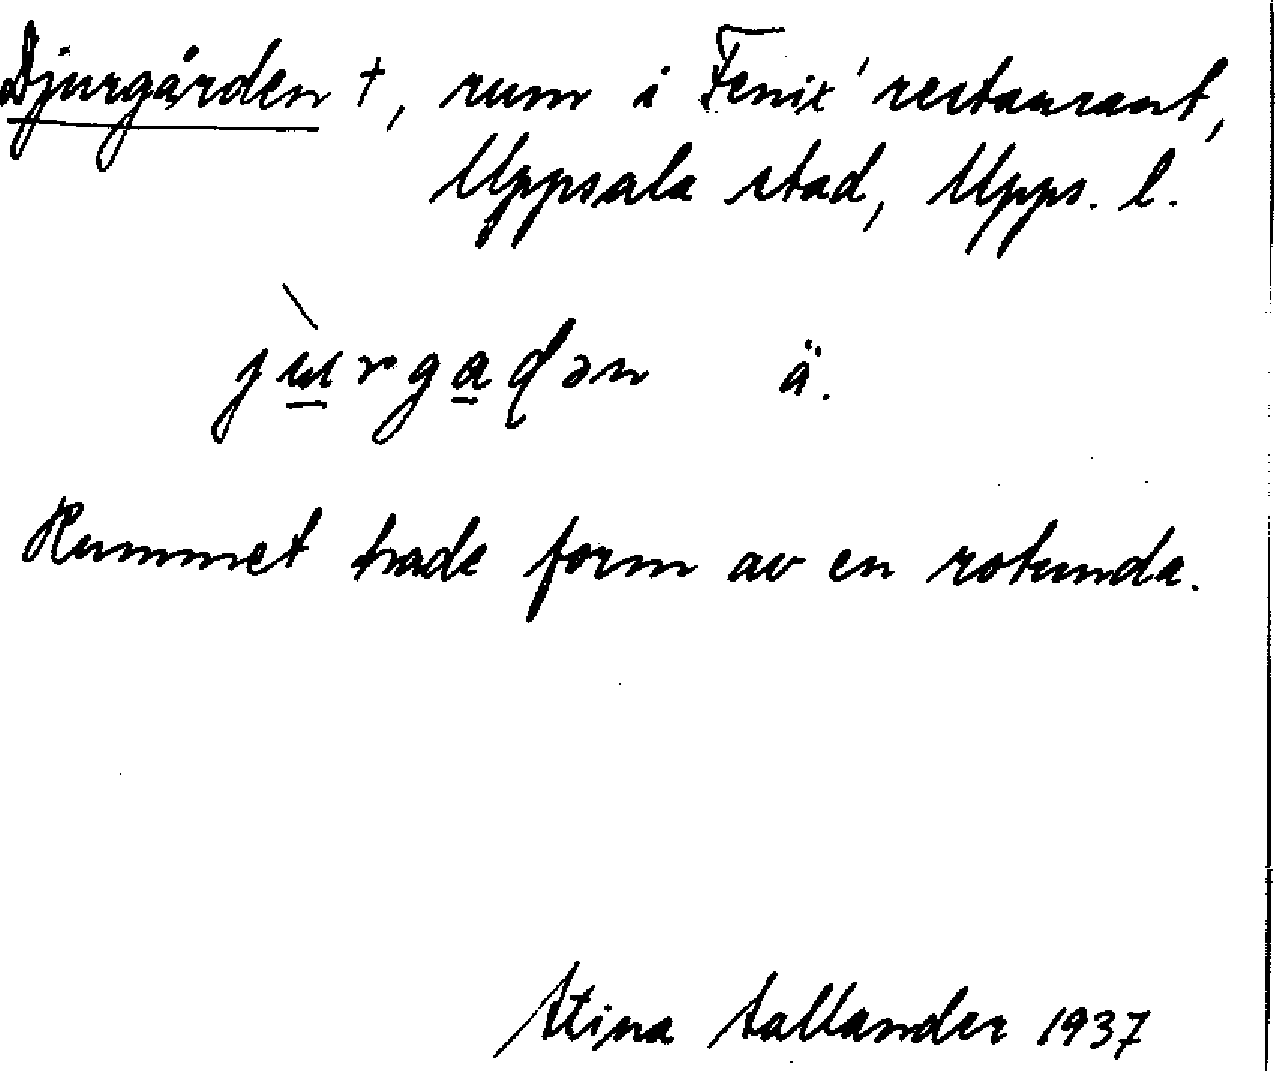 Djurgården †, rum i Fenix' restaurant,
Uppsala stad, Upps. l.
jùrgaɖən ä.
Rummet hade form av en rotunda.
Stina Sallander 1937